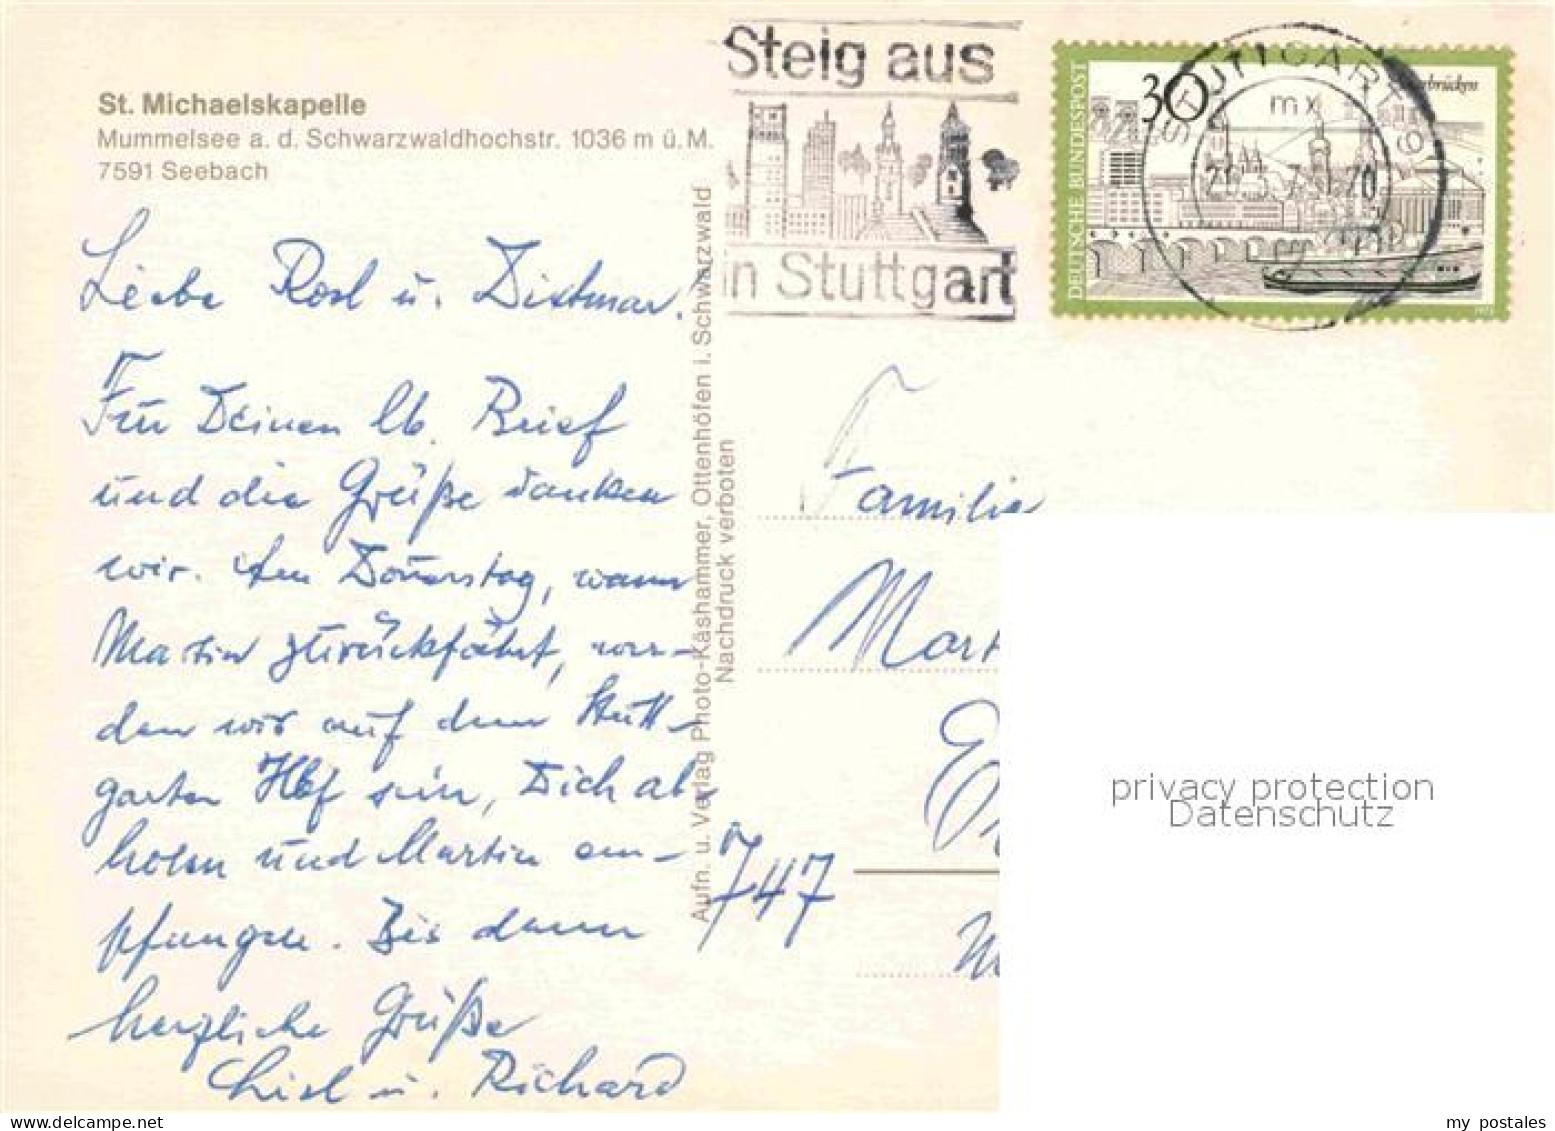 St. Michaelskapelle
Mummelsee a. d. Schwarzwaldhochstr. 1036 m ü. M.
7591 Seebach
Liebe Rosl u. Dietmar.
Für Deinen lb. Brief
und die Grüße danken
wir. Am Donnerstag, wann
Martin zurückfährt, wer-
den wir auf dem Stutt-
garter Hbf sein, Dich ab-
holen und Martin em-
pfangen. Bis dann
herzliche Grüße
Liesl u. Richard
Aufn. u. Verlag Photo-Käshammer, Ottenhöfen i. Schwarzwald
Nachdruck verboten
Steig aus
in Stuttgart
DEUTSCHE BUNDESPOST
30
STUTTGART 9
mx
Familie
747
privacy protection
Datenschutz
my postales